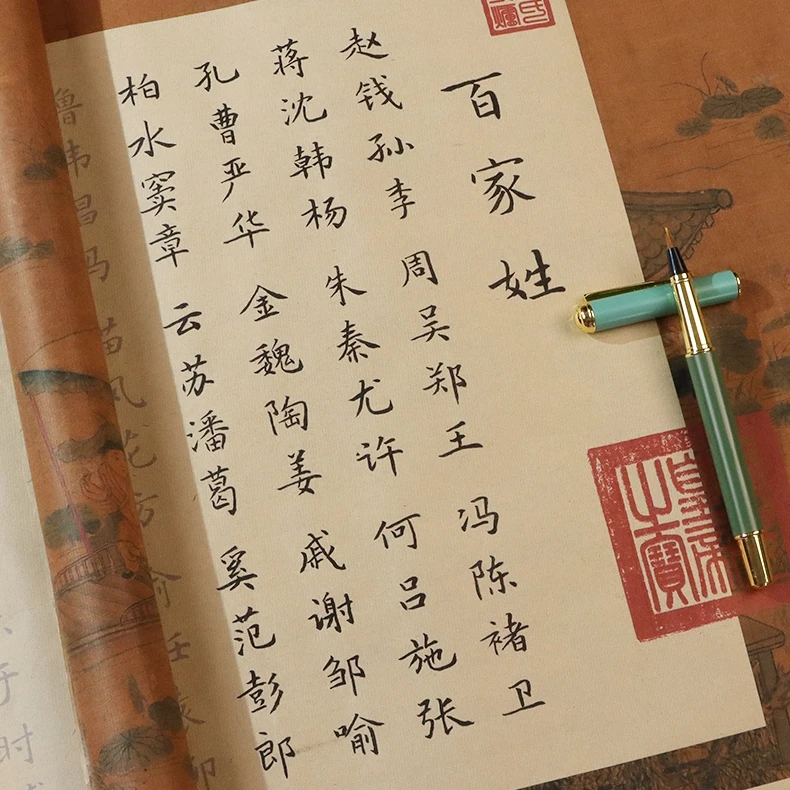 百家姓
赵钱孙李 周吴郑王 冯陈褚卫
蒋沈韩杨 朱秦尤许 何吕施张
孔曹严华 金魏陶姜 戚谢邹喻
柏水窦章 云苏潘葛 奚范彭郎
鲁韦昌马 苗凤花方 俞任袁柳
于时
之寶